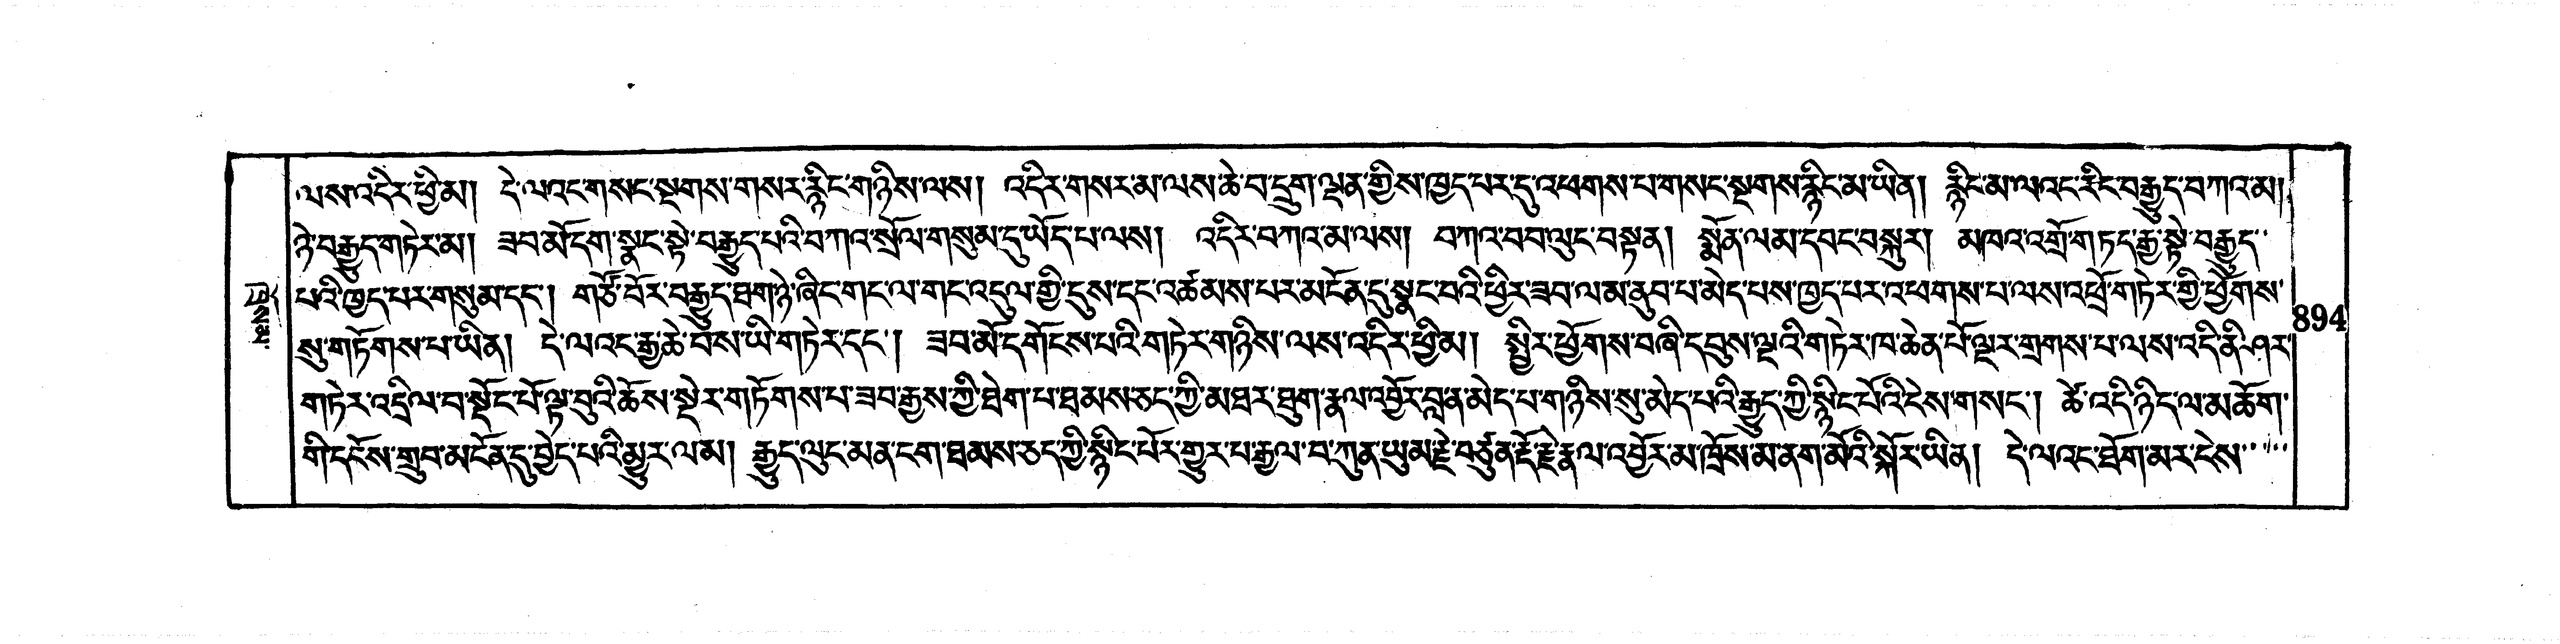 ལས་འདིར་ཕྱི་མ། དེ་ལའང་གསང་སྔགས་གསར་རྙིང་གཉིས་ལས། འདིར་གསར་མ་ལས་ཆེ་བ་དྲུག་ལྡན་གྱིས་ཁྱད་པར་དུ་འཕགས་པ་གསང་སྔགས་རྙིང་མ་ཡིན། རྙིང་མ་ལའང་རིང་བརྒྱུད་བཀའ་མ།
ཉེ་བརྒྱུད་གཏེར་མ། ཟབ་མོ་དག་སྣང་སྟེ་བརྒྱུད་པའི་བཀའ་སྲོལ་གསུམ་དུ་ཡོད་པ་ལས། འདིར་བཀའ་མ་ལས། བཀའ་བབ་ལུང་བསྟན། སྨོན་ལམ་དབང་བསྐུར། མཁའ་འགྲོ་གཏད་རྒྱ་སྟེ་བརྒྱུད་
པའི་ཁྱད་པར་གསུམ་དང༌། གཙོ་བོར་བརྒྱུད་ཐག་ཉེ་ཞིང་གང་ལ་གང་འདུལ་གྱི་དུས་དང་འཚམས་པར་མངོན་དུ་སྣང་བའི་ཕྱིར་ཟབ་ལམ་ནུབ་པ་མེད་པས་ཁྱད་པར་འཕགས་པ་ལས་འཕྲོ་གཏེར་གྱི་ཕྱོགས་
894
སུ་གཏོགས་པ་ཡིན། དེ་ལའང་རྒྱ་ཆེ་བས་ཡི་གཏེར་དང༌། ཟབ་མོ་དགོངས་པའི་གཏེར་གཉིས་ལས་འདིར་ཕྱི་མ། སྤྱིར་ཕྱོགས་བཞི་དབུས་ལྔའི་གཏེར་ཁ་ཆེན་པོ་ལྔར་གྲགས་པ་ལས་འདི་ནི་ཤར་
གཏེར་འདྲིལ་བ་སྡོང་པོ་ལྟ་བུའི་ཆོས་སྡེར་གཏོགས་པ་ཟབ་རྒྱས་ཀྱི་ཐེག་པ་ཐམས་ཅད་ཀྱི་མཐར་ཐུག་རྣལ་འབྱོར་བླན་མེད་པ་གཉིས་སུ་མེད་པའི་རྒྱུད་ཀྱི་སྙིང་པོའི་ངེས་གསང༌། ཚེ་འདི་ཉིད་ལ་མཆོག་
གི་དངོས་གྲུབ་མངོན་དུ་བྱེད་པའི་མྱུར་ལམ། རྒྱུད་ལུང་མན་ངག་ཐམས་ཅད་ཀྱི་སྙིང་པོར་གྱུར་པ་རྒྱལ་བ་ཀུན་ཡུམ་རྗེ་བཙུན་རྡོ་རྗེ་རྣལ་འབྱོར་མ་ཁྲོས་མ་ནག་མོའི་སྐོར་ཡིན། དེ་ལའང་ཐོག་མར་ངེས་